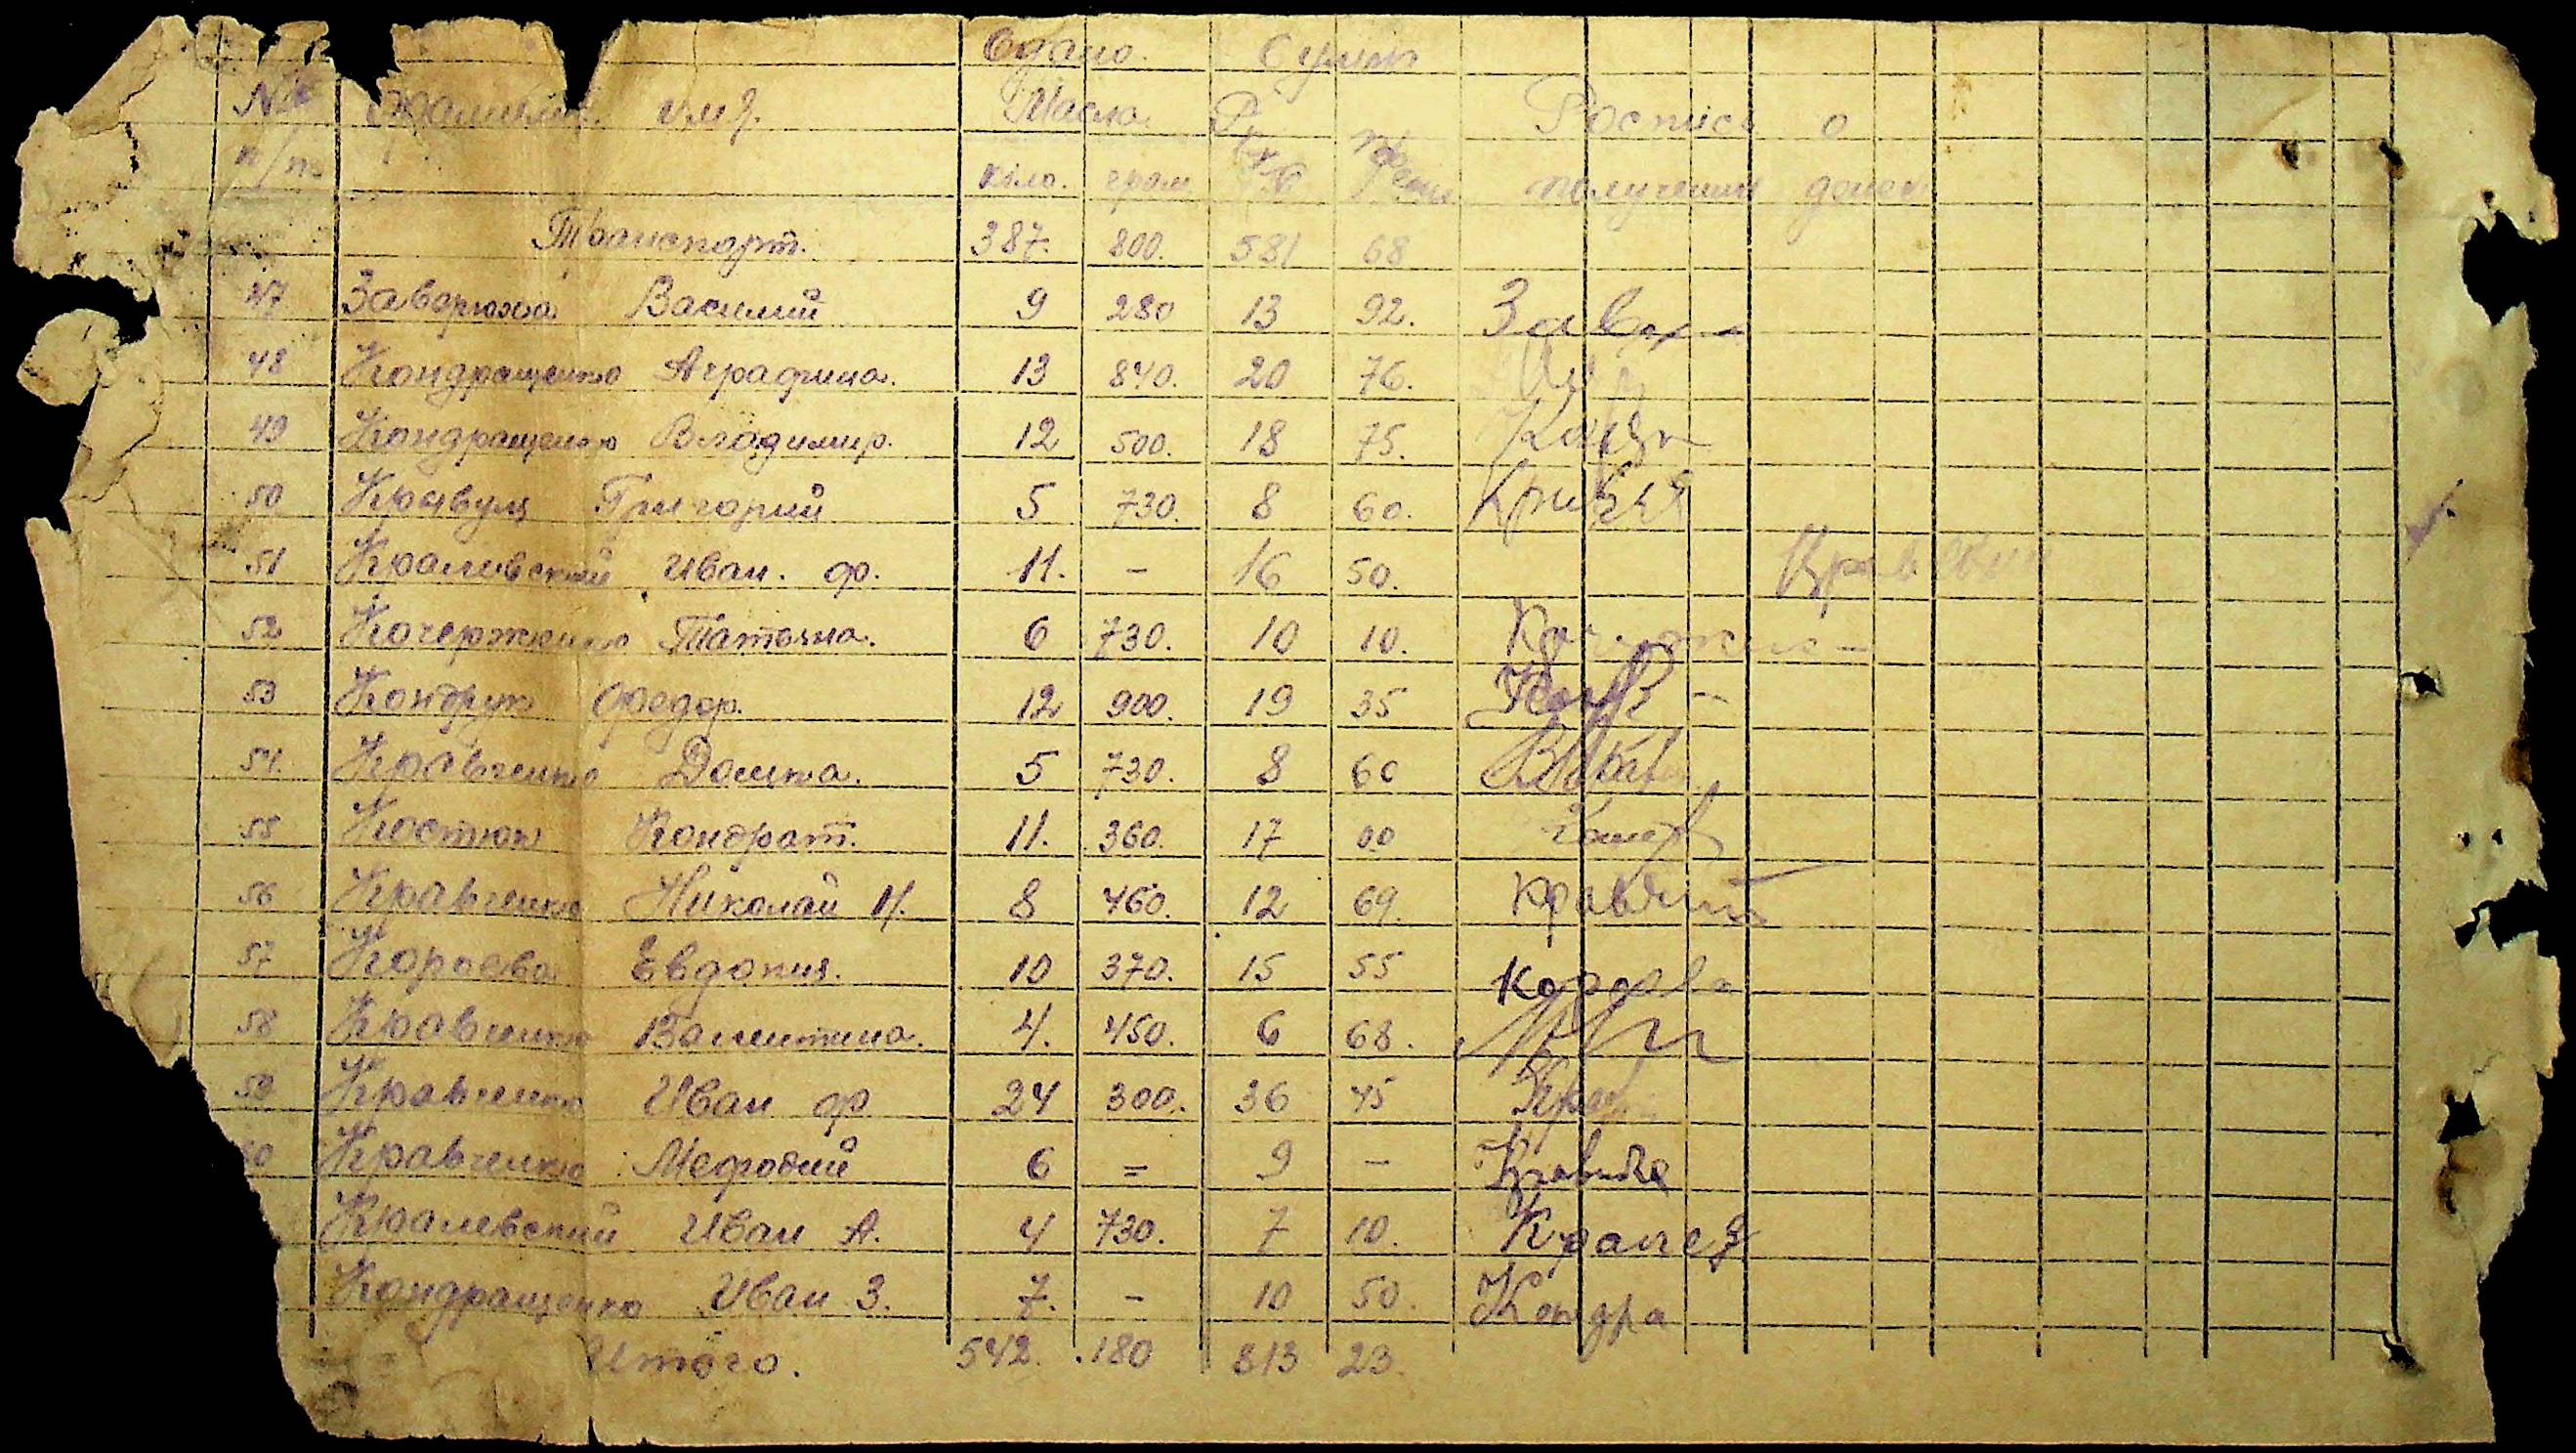 Сдано. Сумма
№№ Фамилия имя. Масла Р. Роспись о
п/п кіло. грам получении денег
Транспорт. 387. 800. 581 68
47 Заверюха Василий 9 280 13 92. Завер
48 Кондращенко Аграфина. 13 840. 20 76.
49 Кондращенко Владимир. 12 500. 18 75. Конд
50 Кравуц Григорий 5 730. 8 60.
51 Кралевский Иван. ф. 11. – 16 50.
52 Кочерженко Татьяна. 6 730. 10 10.
53 Кондрук Федор. 12 900. 19 35
54. Кравченко Домка. 5 730. 8 60
55 Костюк Кондрат. 11. 360. 17 00
56 Кравченко Николай Н. 8 460. 12 69.
57 Короева Евдокия. 10 370. 15 55
58 Кравченко Валентина. 4. 450. 6 68.
59 Кравченко Иван ф 24 300. 36 45 Крав
60 Кравченко Мефодий 6 = 9 –
Кралевский Иван А. 4 730. 7 10. Кралев
Кондращенко Иван З. 7. – 10 50. Кондра
Итого. 542. 180 813 23.